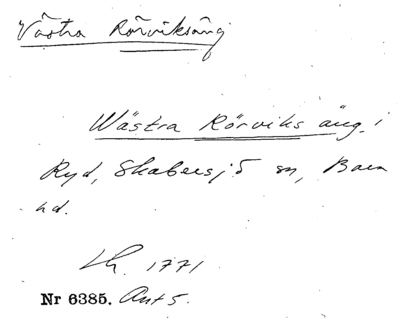 Västra Rörviksäng
Wästra Rörviks äng i
Ryd, Skabersjö sn, Bara
hd.
Lh. 1771
Nr 6385. Ant 5.